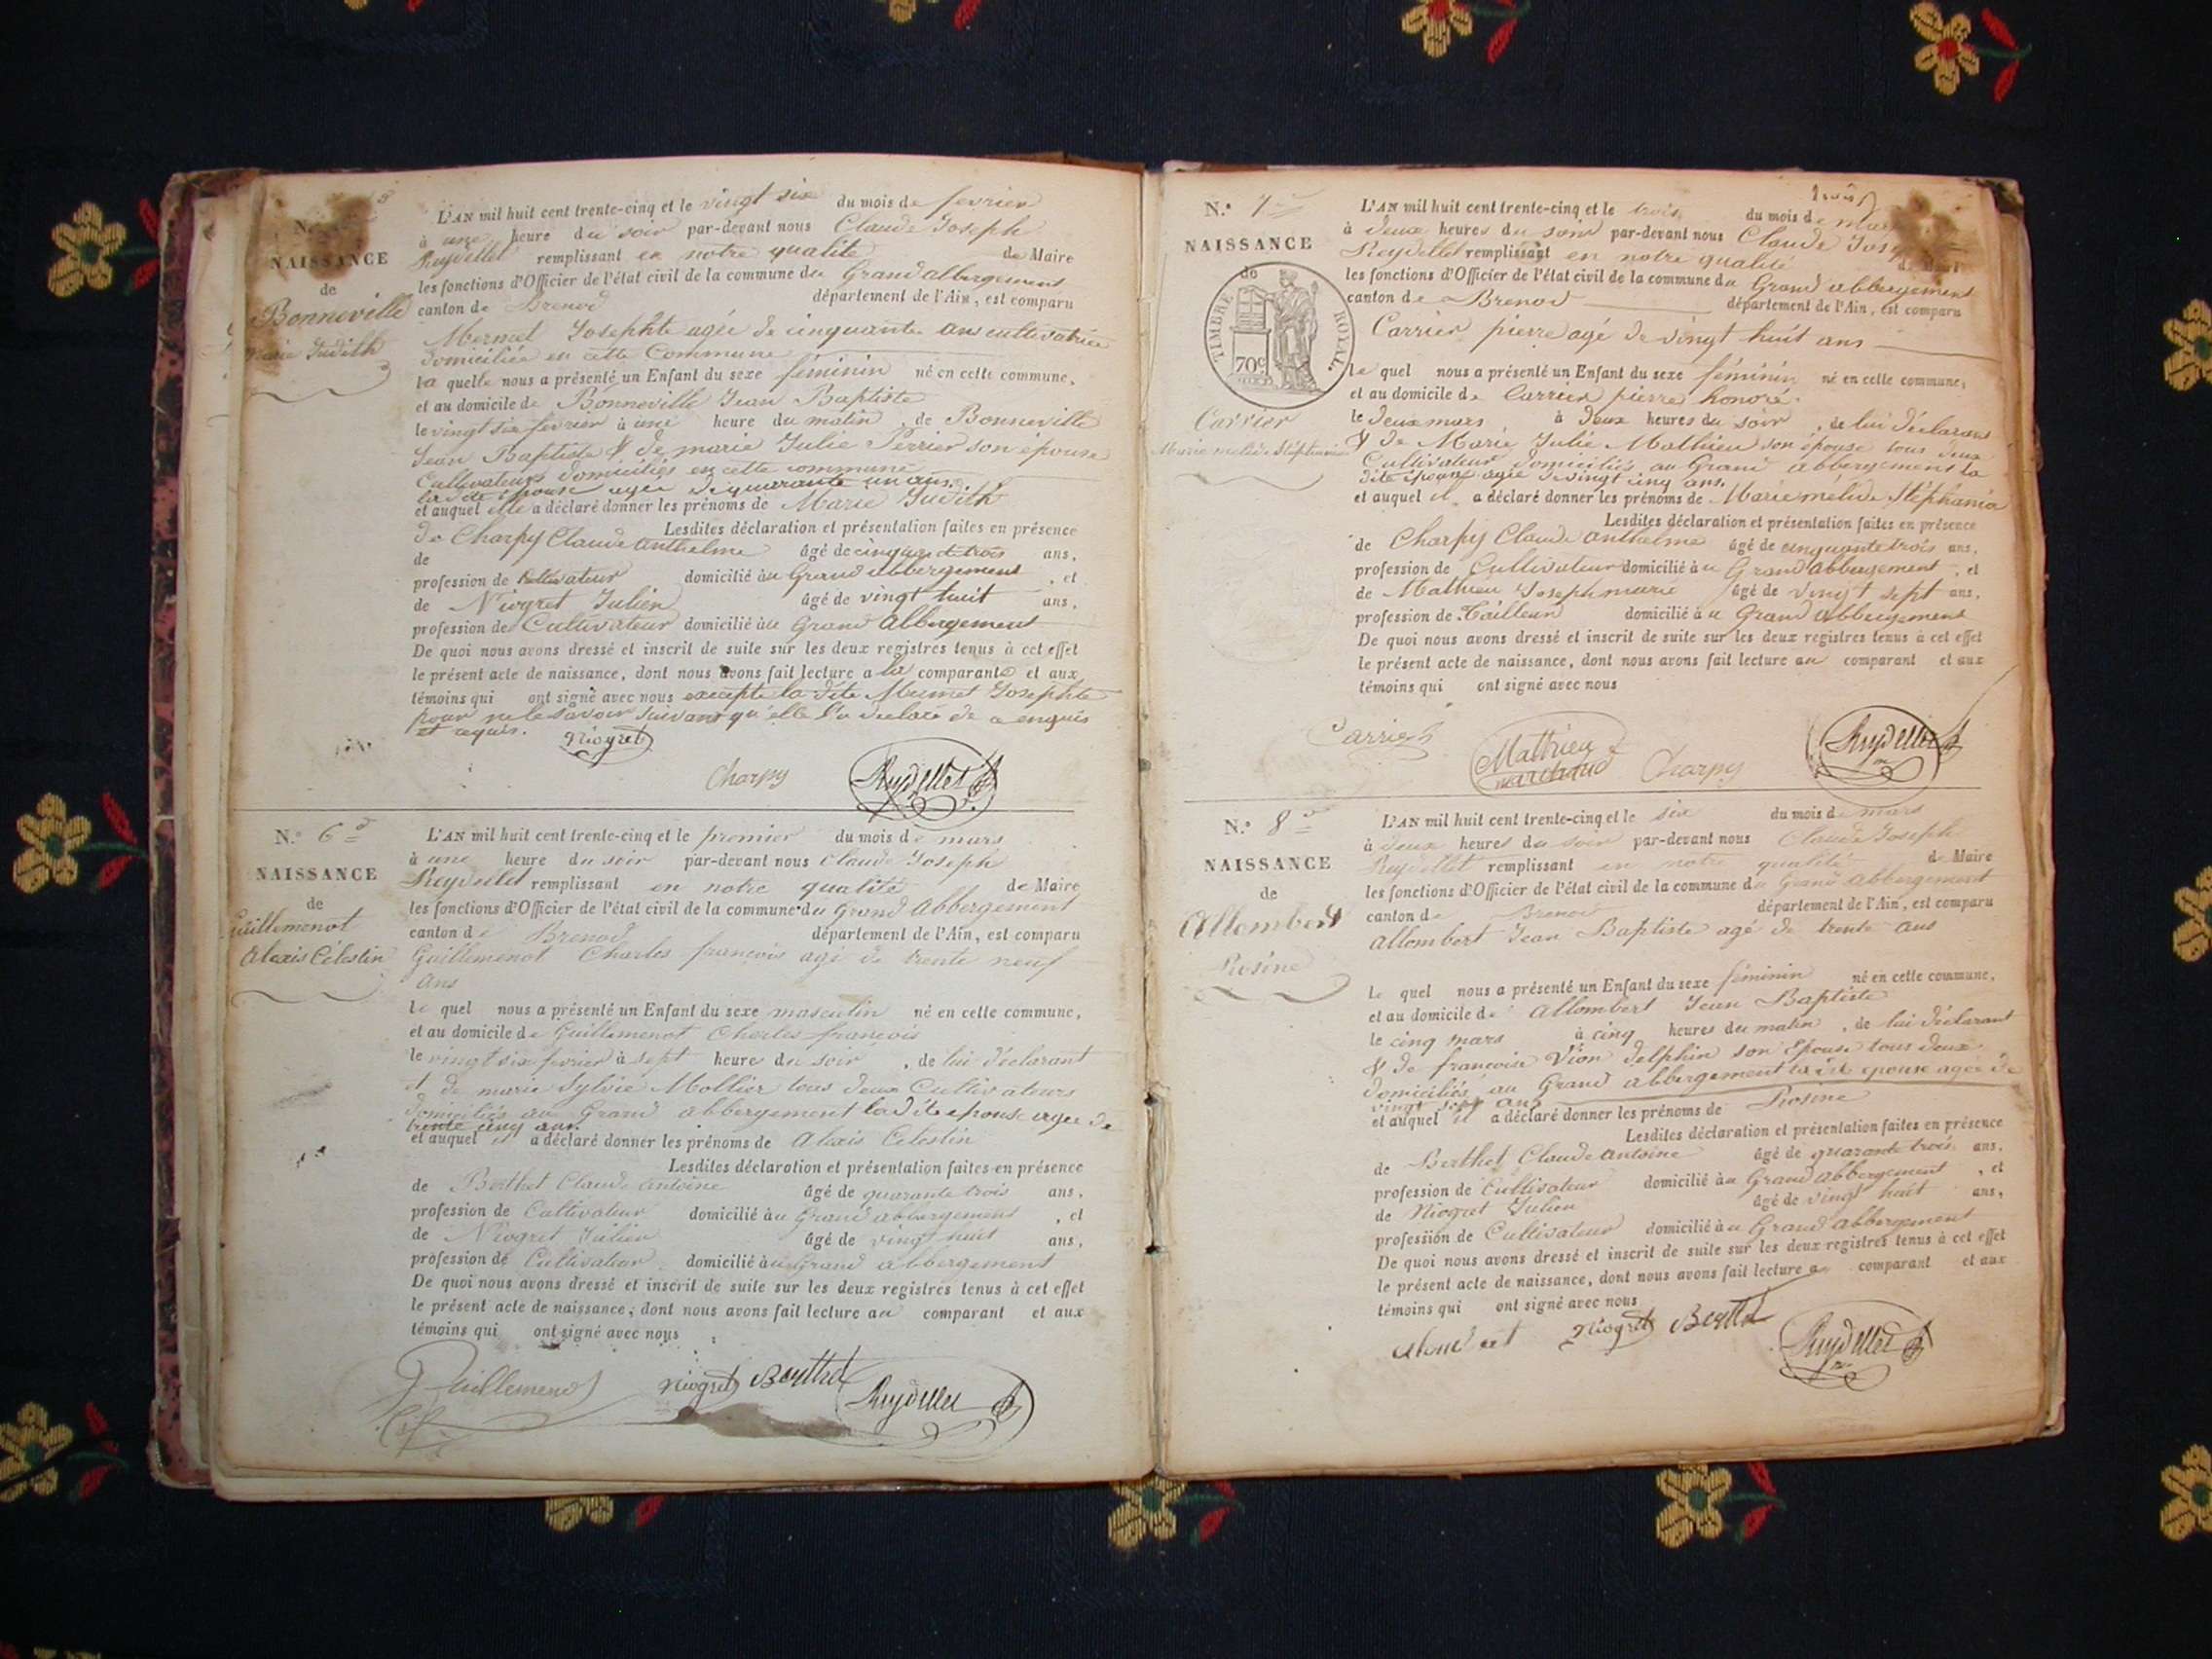 NAISSANCE
de
Bonneville
Marie Judith
L'AN mil huit cent trente-cinq et le vingt six du mois de fevrier
à une heure du soir par-devant nous Claude Joseph
Reydellet remplissant en notre qualité de Maire
les fonctions d'Officier de l'état civil de la commune du Grand abbergement
canton de Brenod département de l'Ain, est comparu
Mermet Josephte agée de cinquante ans cultivatrice
domiciliée en cette Commune
la quelle nous a présenté un Enfant du sexe féminin né en cette commune,
et au domicile de Bonneville Jean Baptiste
le vingt six fevrier à une heure du matin, de Bonneville
Jean Baptiste & de marie Julie Perrier son épouse
Cultivateurs domiciliés en cette commune
la dite épouse agée de quarante un ans.
et auquel elle a déclaré donner les prénoms de Marie Judith
Lesdites déclaration et présentation faites en présence
de Charpy Claude anthelme âgé de cinquante trois ans,
de
profession de Cultivateur domicilié au Grand abbergement, et
de Niogret Julien âgé de vingt huit ans,
profession de Cultivateur domicilié au Grand abbergement
De quoi nous avons dressé et inscrit de suite sur les deux registres tenus à cet effet
le présent acte de naissance, dont nous avons fait lecture a la comparante et aux
témoins qui ont signé avec nous excepté la dite Mermet Josephte
pour ne le savoir suivant qu'elle l'a declaré de a enquis
et requis.
Niogret
Charpy Reydellet
N.° 6
NAISSANCE
de
Guillemenot
Alexis Célestin
L'AN mil huit cent trente-cinq et le premier du mois de mars
à une heure du soir par-devant nous Claude Joseph
Reydellet remplissant en notre qualité de Maire
les fonctions d'Officier de l'état civil de la commune du Grand Abbergement
canton de Brenod département de l'Ain, est comparu
Guillemenot Charles françois agé de trente neuf
ans
le quel nous a présenté un Enfant du sexe masculin né en cette commune,
et au domicile de Guillemenot Charles françois
le vingt six fevrier à sept heures du soir, de lui déclarant
et de marie Sylvie Mollier tous deux Cultivateurs
domiciliés au Grand abbergement la dite épouse agée de
trente cinq ans.
et auquel il a déclaré donner les prénoms de Alexis Célestin
Lesdites déclaration et présentation faites en présence
de Berthet Claude Antoine âgé de quarante trois ans,
profession de Cultivateur domicilié au Grand abbergement, et
de Niogret Julien âgé de vingt huit ans,
profession de Cultivateur domicilié au Grand abbergement
De quoi nous avons dressé et inscrit de suite sur les deux registres tenus à cet effet
le présent acte de naissance, dont nous avons fait lecture au comparant et aux
témoins qui ont signé avec nous
Guillemenot Niogret Berthet Reydellet
N.° 7
NAISSANCE
de
TIMBRE ROYAL.
70c
Carrier
Marie mélide Stéphanie
L'AN mil huit cent trente-cinq et le trois du mois de mars
à deux heures du soir par-devant nous Claude Joseph
Reydellet remplissant en notre qualité de Maire
les fonctions d'Officier de l'état civil de la commune du Grand abbergement
canton de Brenod département de l'Ain, est comparu
Carrier pierre agé de vingt huit ans
le quel nous a présenté un Enfant du sexe féminin né en cette commune,
et au domicile de Carrier pierre honoré.
le deux mars à deux heures du soir, de lui déclarant
& de Marie Julie Mathieu son épouse tous deux
Cultivateurs domiciliés au Grand abbergement la
dite épouse agée de vingt cinq ans.
et auquel il a déclaré donner les prénoms de Marie mélide Stéphanie
Lesdites déclaration et présentation faites en présence
de Charpy Claude anthelme âgé de cinquante trois ans,
profession de Cultivateur domicilié au Grand abbergement, et
de Mathieu Joseph marie âgé de vingt sept ans,
profession de Tailleur domicilié au Grand abbergement
De quoi nous avons dressé et inscrit de suite sur les deux registres tenus à cet effet
le présent acte de naissance, dont nous avons fait lecture au comparant et aux
témoins qui ont signé avec nous
Carrier Mathieu marchand Charpy Reydellet
N.° 8
NAISSANCE
de
Allombert
Rosine
L'AN mil huit cent trente-cinq et le six du mois de mars
à deux heures du soir par-devant nous Claude Joseph
Reydellet remplissant en notre qualité de Maire
les fonctions d'Officier de l'état civil de la commune du Grand Abbergement
canton de Brenod département de l'Ain, est comparu
allombert Jean Baptiste agé de trente ans
le quel nous a présenté un Enfant du sexe féminin né en cette commune,
et au domicile de Allombert Jean Baptiste
le cinq mars à cinq heures du matin, de lui déclarant
& de françoise Vion Delphin son Epouse tous deux
domiciliés au Grand abbergement la dite epouse agée de
vingt sept ans
et auquel il a déclaré donner les prénoms de Rosine
Lesdites déclaration et présentation faites en présence
de Berthet Claude antoine âgé de quarante trois ans,
profession de Cultivateur domicilié au Grand abbergement, et
de Niogret Julien âgé de vingt huit ans,
profession de Cultivateur domicilié au Grand abbergement
De quoi nous avons dressé et inscrit de suite sur les deux registres tenus à cet effet
le présent acte de naissance, dont nous avons fait lecture au comparant et aux
témoins qui ont signé avec nous
Niogret Berthet Reydellet